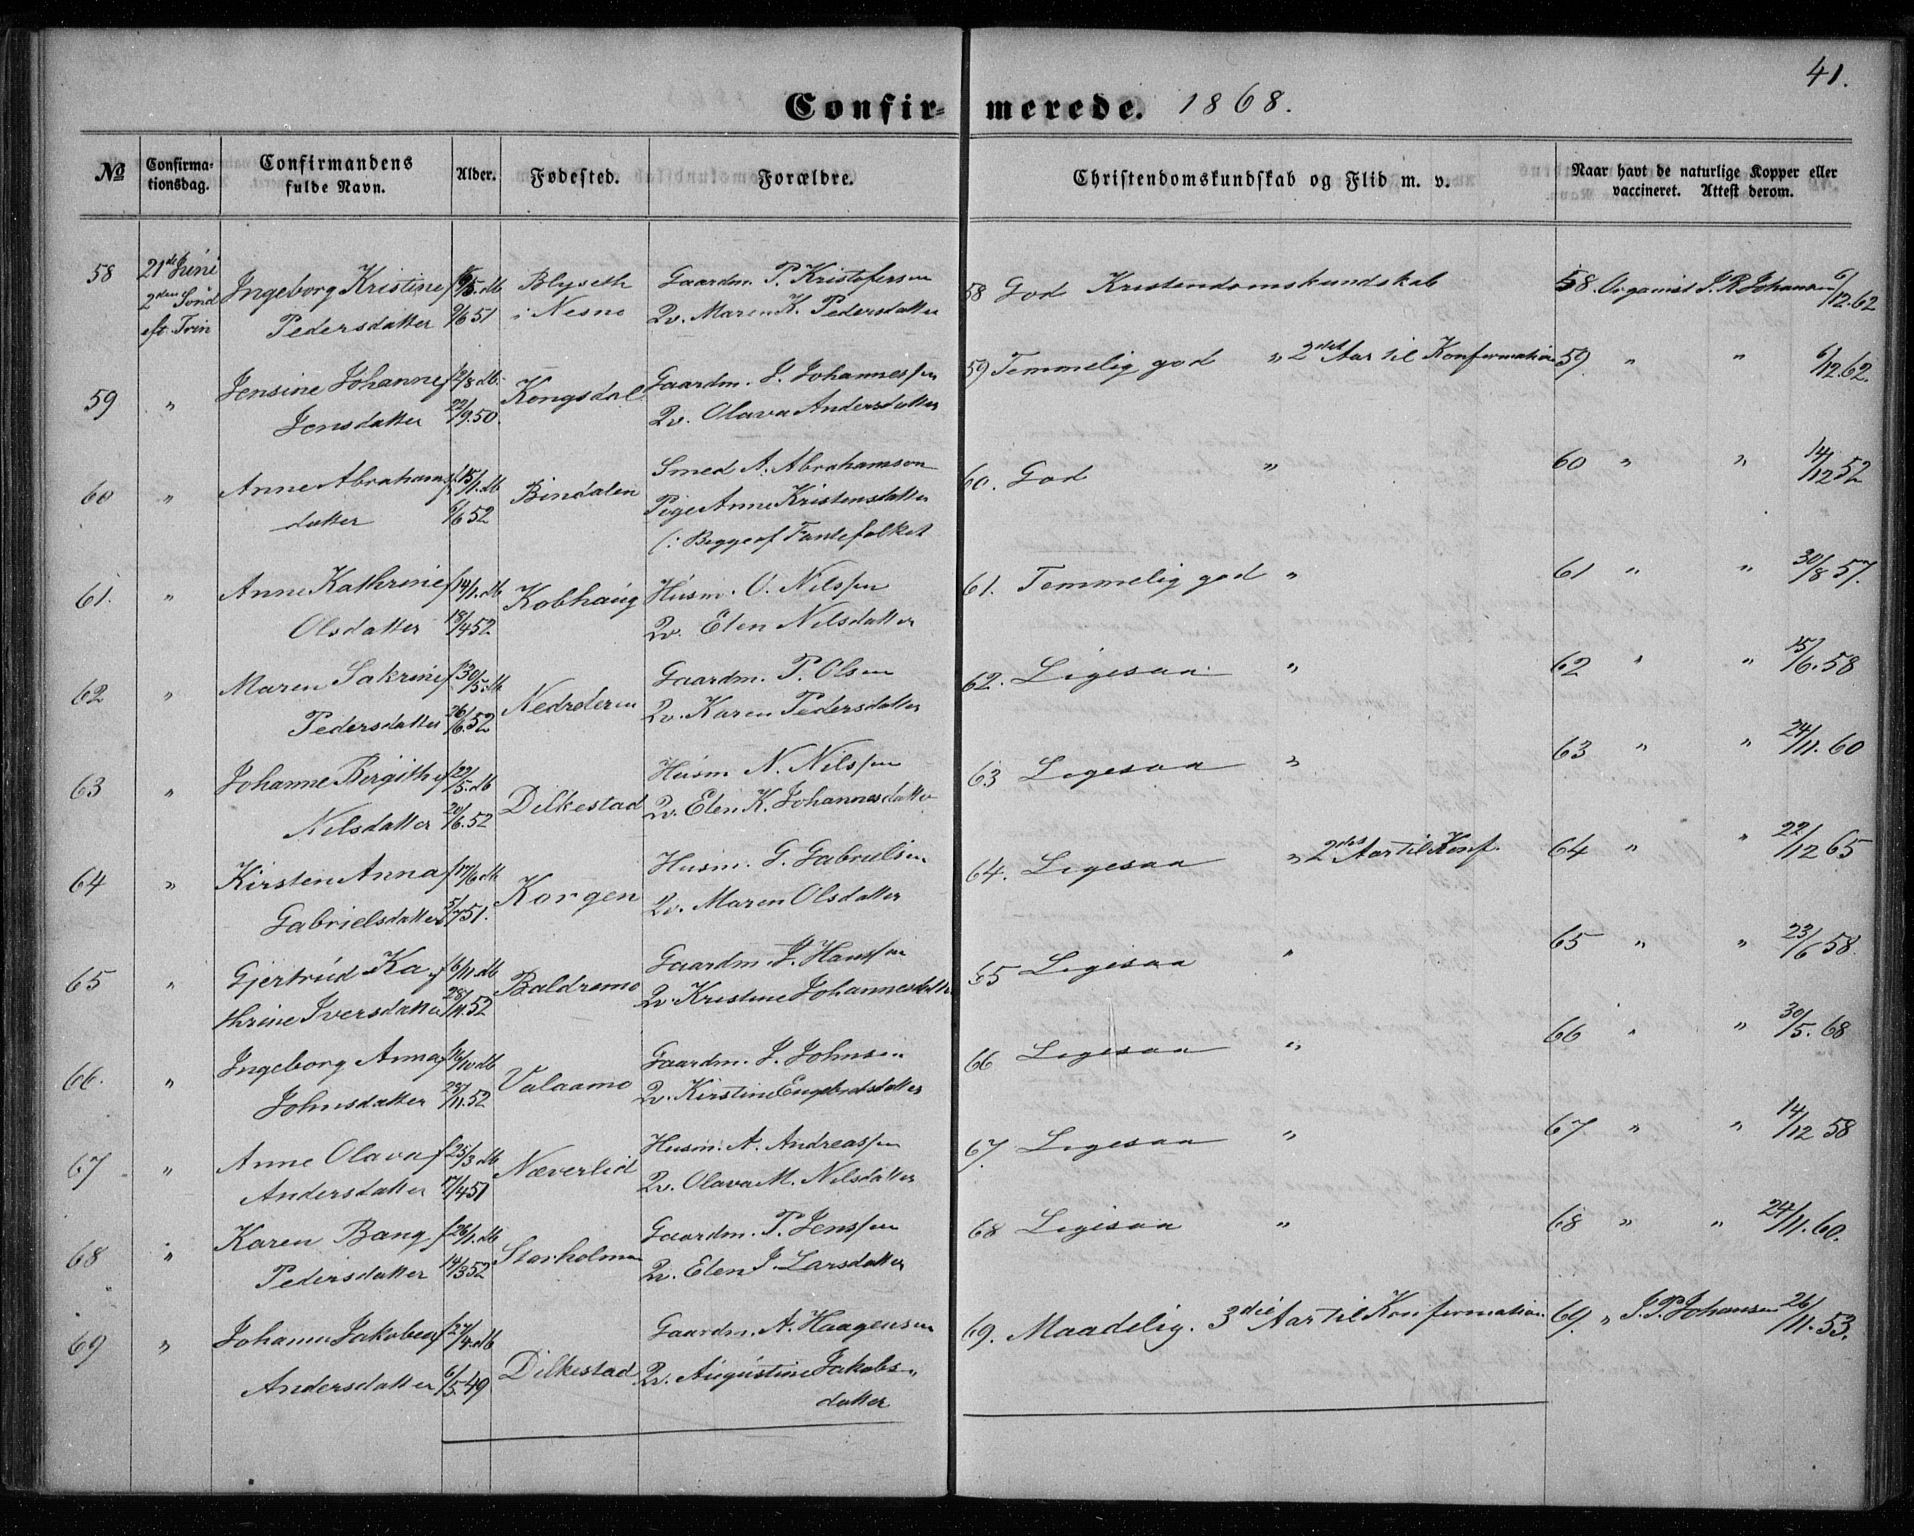 41.
Confirmerede. 1868.
No
Confirmationsdag.
Confirmandens fulde Navn.
Alder.
Fødested.
Forældre.
Christendomskundskab og Flid m. v.
Naar havt de naturlige Kopper eller vaccineret. Attest derom.
58 21de Juni Ingeborg Kristine f /5. db Blyseth Gaardm. P. Kristofersen 58 God Kristendomskundskab 58. Organist J. R. Johansen 6/12.62
2den Sønd eft. Trin Pedersdatter /6 51 i Nesne Qv. Maren K. Pedersdatter
59 " Jensine Johanne f /8 db. Kongsdal Gaardm. J. Johannessen 59 Temmelig god " 2det Aar til Konfirmation 59. " " 6/12.62.
Jensdatter 22/9.50. Qv. Olava Andersdatter
60 " Anne Abrahams f 15/1. db Bindalen Smed A. Abrahamson 60. God " 60 " " 14/12 52
datter /6 52 Pige Anne Kristensdatter
(: Begge af Fantefolket
61. " Anne Kathrine f 14/1. db Kobhaug Husm. O. Nilssen 61. Temmelig god " 61 " " 30/8 57.
Olsdatter 18/4 52 Qv. Elen Nilsdatter
62 " Maren Sakrine f 30/5. db Gaardm. P. Olsen 62. Ligesaa " 62 " " 15/6.58
Pedersdatter 26/6.52 Qv. Karen Pedersdatter
63 " Johanne Bergithe f 22/5. db Dilkestad Husm N. Nilssen 63 Ligesaa " 63 " " 24/11.60
Nilsdatter 20/6.52 Qv. Elen K. Johannesdatter
64 " Kirsten Anna f 17/6 db Korgen Husm. G. Gabrielsen 64. Ligesaa " 2det Aar til Konf. 64 " " 22/12 65
Gabrielsdatter 5/7 51. Qv. Maren Olsdatter
65 " Gjertrud Ka f 6/11. db Baldremo Gaardm. J. Hanssen 65 Ligesaa " 65 " " 23/6 58.
thrine Iversdatter 28/11.52 Qv Kristine Johannesdatter
66. " Ingeborg Anna f /10 db Valaamo Gaardm. J. Johnsen 66 Ligesaa " 66 " " 30/5.68
Johnsdatter 28/11.52 Qv. Kirstine Engebretsdatter
67 " Anne Olava f 25/3 db Næverlid Husm. A. Andreassen 67. Ligesaa " 67 " " 14/12 58
Andersdatter /4 51 Qv. Olava M. Nilsdatter
68 " Karen Bang f 26/1. db Storholmen Gaardm. P. Jenssen 68 Ligesaa " 68 " " 24/11.60.
Pedersdatter 14/3 52 Qv. Elen J. Larsdatter
69 " Johanne Jakobea f 27/4. db Dilkestad Gaardm. A. Haagensen 69. Maadelig. 3die Aar til Konfirmation 69. " J. P. Johansen 26/11.53.
Andersdatter 6/5 49 Qv. Augustine Jakobs-
datter